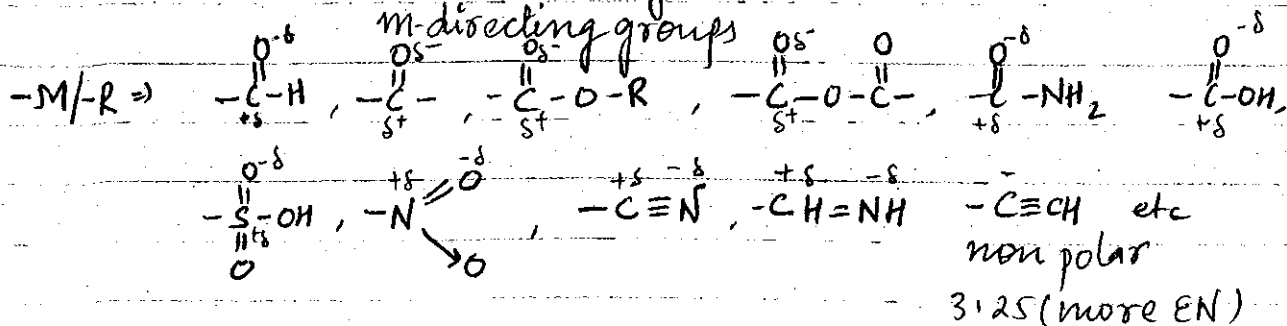 m-directing groups
-M/-R ⇒ -C(=O)-H , -C(=O)- , -C(=O)-O-R , -C(=O)-O-C(=O)- , -C(=O)-NH₂ -C(=O)-OH,
-S(=O)(=O)-OH , -N(=O)→O , -C≡N , -CH=NH -C≡CH etc
non polar
3.25 (more EN)